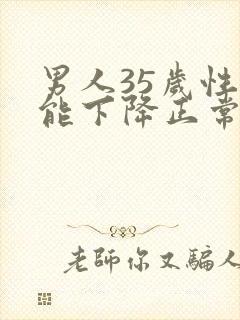 男人35歲性
能下降正常
老師你又騙人